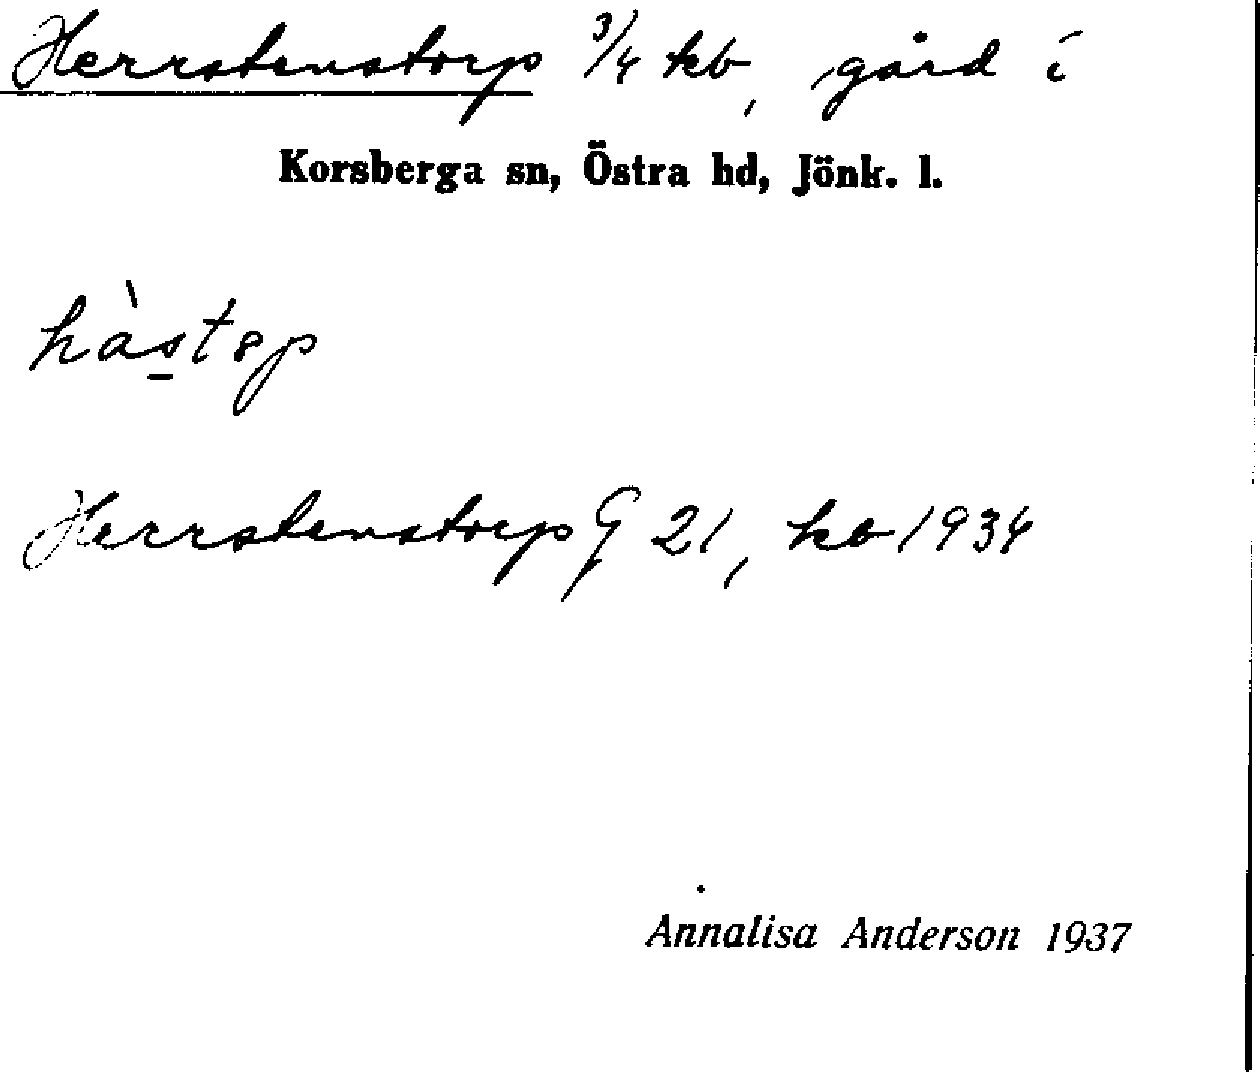 Herrstenstorp 3/4 kb, gård i
Korsberga sn, Östra hd, Jönk. l.
hàs̱tsp
Herrstenstorp G 21, kb 1934
Annalisa Anderson 1937